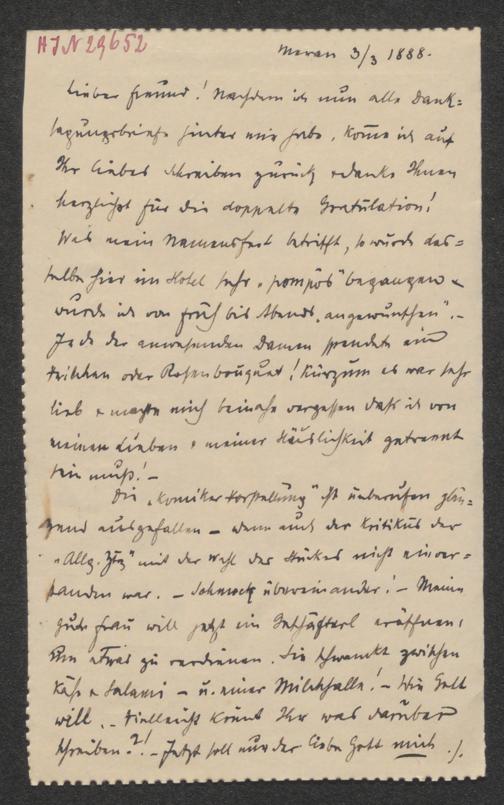 HIN 29652
Meran 3/3 1888.
Lieber Freund! Nachdem ich nun alle Dank=
sagungsbriefe hinter mir habe, kome ich auf
Ihr liebes Schreiben zurück & danke Ihnen
herzlichst für die doppelte Gratulation!
Was mein Namensfest betrifft, so wurde das=
selbe hier im Hotel sehr „pompös" begangen &
wurde ich von früh bis Abends „angewunschen". -
Jede der anwesenden Damen spendete ein
Veilchen oder Rosenbouquet! Kurzum es war sehr
lieb & machte mich beinahe vergessen daß ich von
meinen Lieben & meiner Häuslichkeit getrennt
sein muß! -
Die „Komiker Vorstellung" ist unberufen glän=
zend ausgefallen - wenn auch der Kritikus der
„Allg. Ztg" mit der Wahl des Stückes nicht einver=
standen war. - Schmock übereinander! - Meine
gute Frau will jetzt ein Geschäfterl eröffnen,
um etwas zu verdienen. Sie schwankt zwischen
Käse & Salami - u. einer Milchhalle! - Wie Gott
will. - Vielleicht könnt Ihr was darüber
schreiben?! - Jetzt soll nur der liebe Gott mich